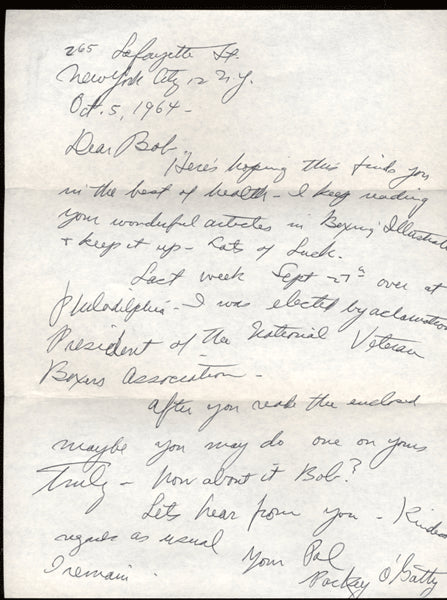 265 Lafayette St.
New York City 12 N.Y.
Oct. 5, 1964 -
Dear Bob,
Here's hoping this finds you
in the best of health - I keep reading
your wonderful articles in Boxing Illustrate
+ keep it up - Lots of Luck.
Last week Sept 27th over at
Philadelphia - I was elected by aclamation
President of the National Veteran
Boxers Association -
After you read the enclosed
maybe you may do one on yours
Truly - how about it Bob?
Lets hear from you - Kindes
regards as usual
Your Pal
I remain. Packey O'Gatty